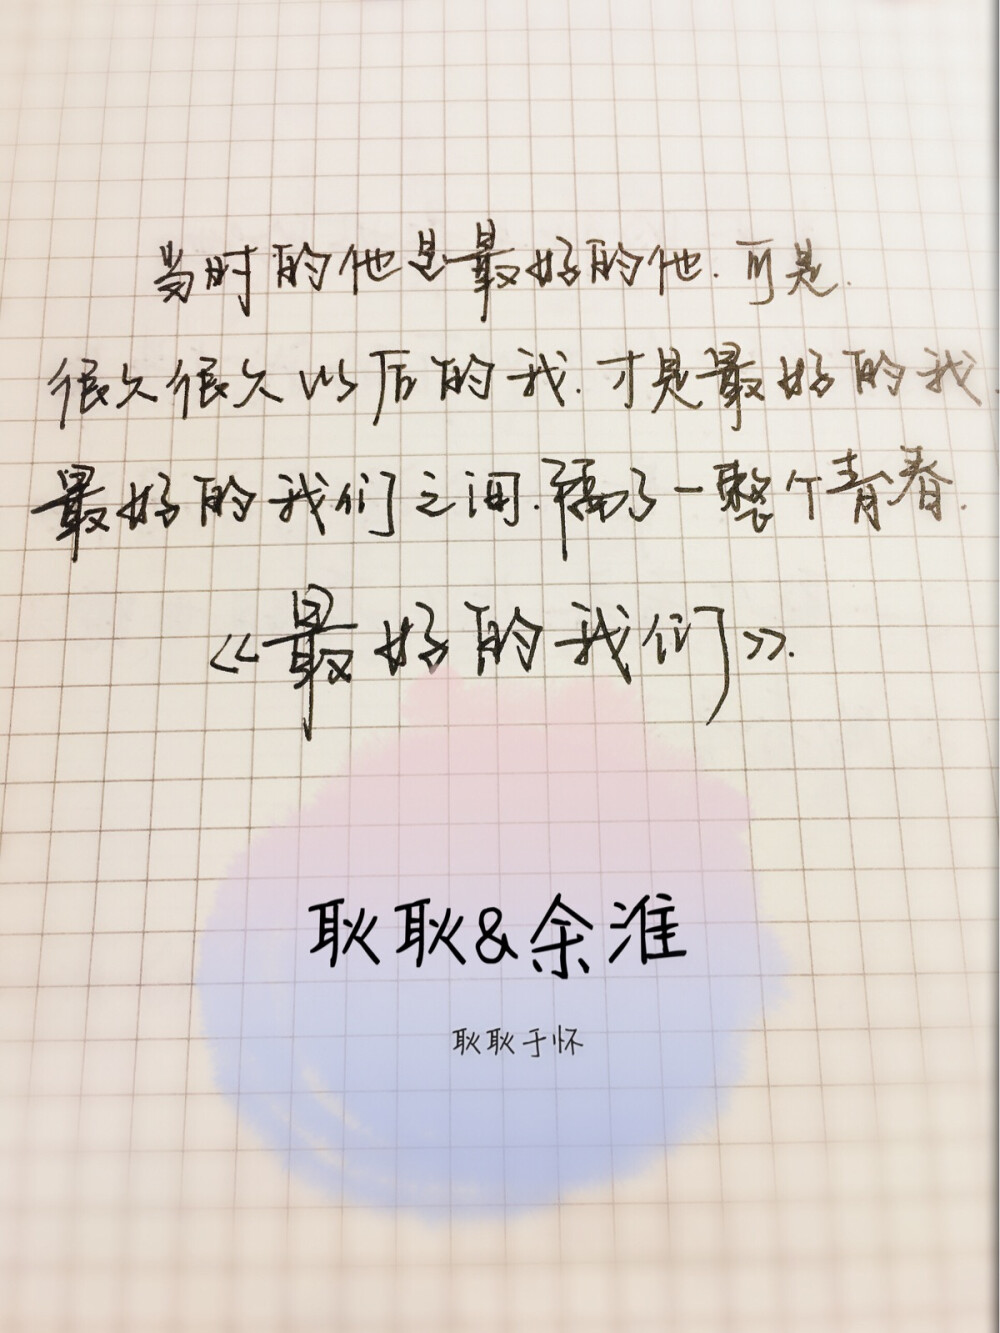 当时的他是最好的他.可是.
很久很久以后的我.才是最好的我
最好的我们之间.隔了一整个青春.
《最好的我们》.
耿耿&余淮
耿耿于怀